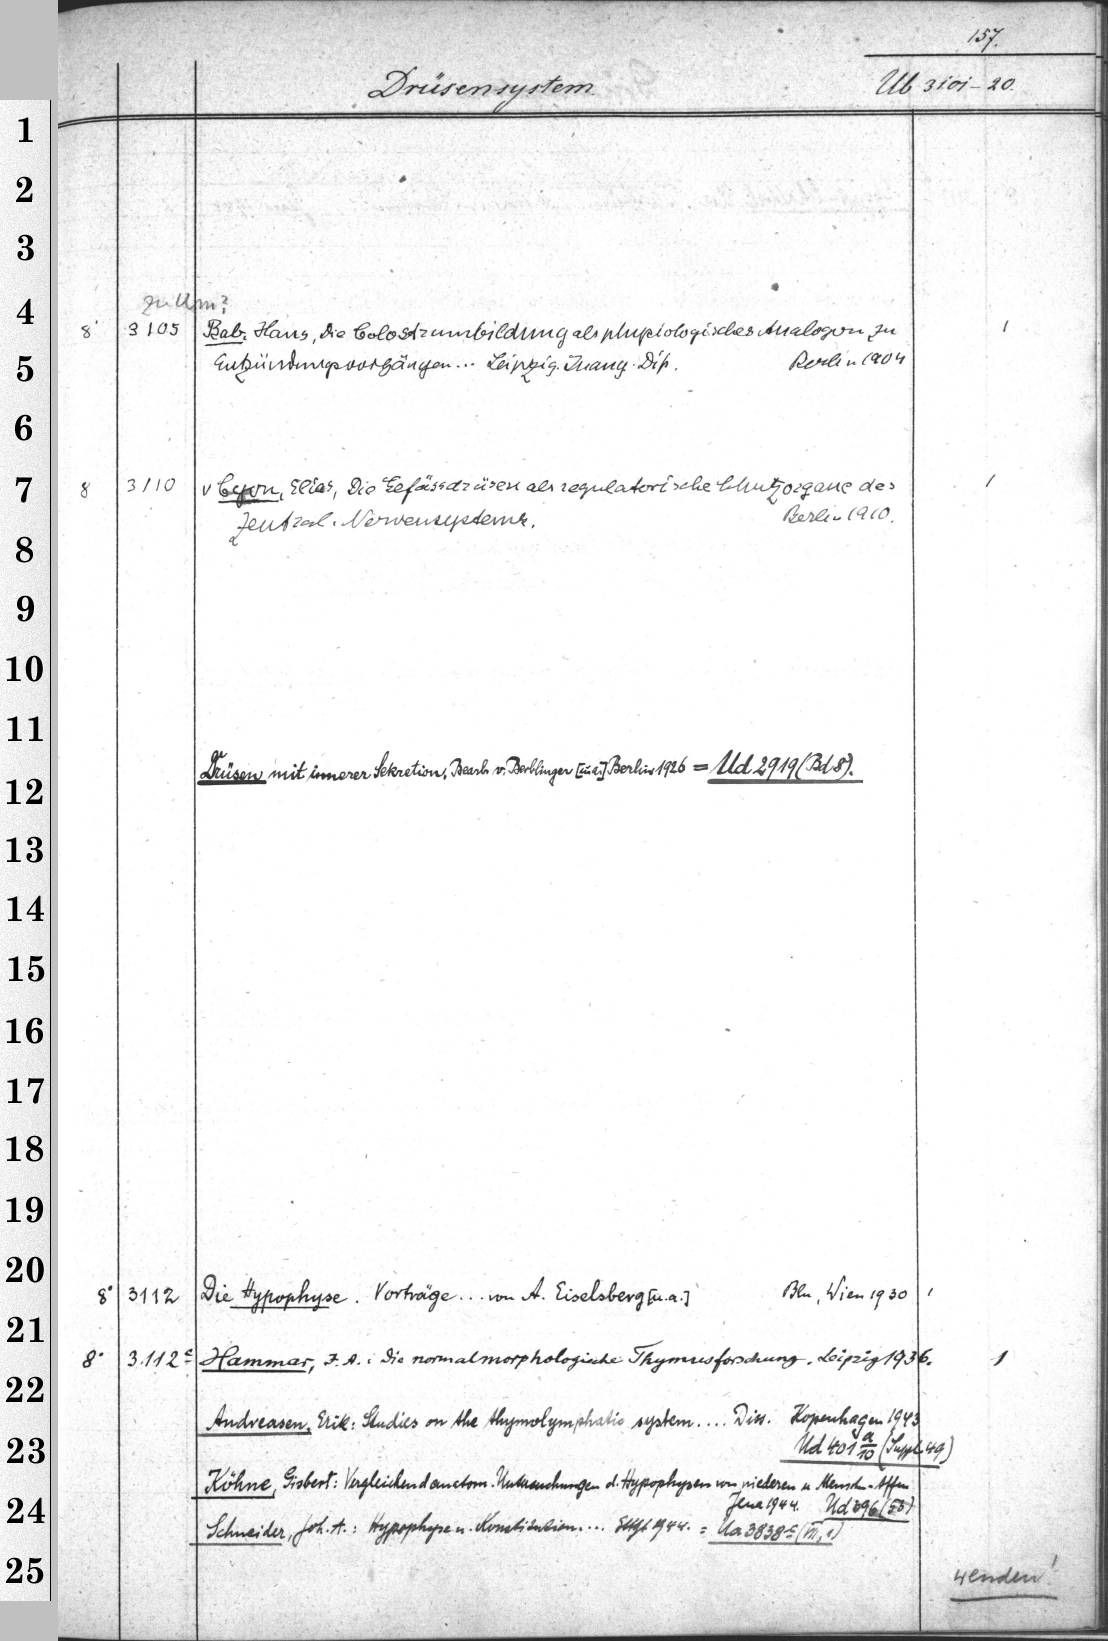 157.
Drüsensystem
Ub 3101-20.
1
2
3
4
zu Um?
8° 3105 Bab, Hans, Die Colostrumbildung als physiologisches Analogon zu 1
5
Entzündungsvorgängen... Leipzig. Inaug. Diss. Berlin 1904
6
7
8 3110 v Cyon, Elias, Die Gefässdrüsen als regulatorische Schutzorgane des 1
Zentral-Nervensystems. Berlin 1910.
8
9
10
11
Drüsen mit innerer Sekretion, Bearb. v. Berblinger [u.a.] Berlin 1926 = Ud 2919 (Bd 8).
12
13
14
15
16
17
18
19
20
8° 3112 Die Hypophyse. Vorträge... von A. Eiselsberg [u.a.] Bln, Wien 1930 1
21
8° 3112c Hammar, J. A.: Die normalmorphologische Thymusforschung. Leipzig 1936. 1
22
Andreasen, Erik: Studies on the thymolymphatic system.... Diss. Kopenhagen 1943
23
Ud 401 a/10 (Suppl. 49)
Köhne, Gisbert: Vergleichend anatom. Untersuchungen d. Hypophysen von niederen u Mensch-Affen
24
Jena 1944. Ud 396 (53)
Schneider, Joh. A.: Hypophyse u. Konstitution.... Sttgt 1944. = Ua 3838c (VII, 1)
25
wenden!